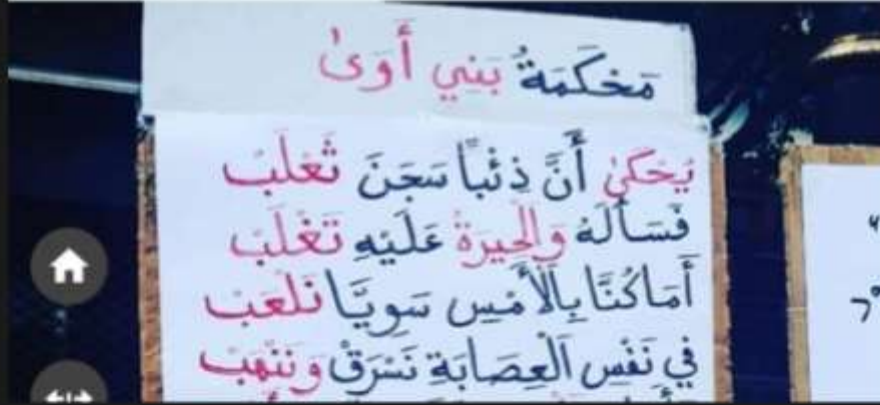 مَحْكَمَةُ بَنِي أَوَىٰ
يُحْكَىٰ أَنَّ ذِئْبًا سَجَنَ ثَعْلَبْ
فَسَأَلَهُ وَالْحَيْرَةُ عَلَيْهِ تَغْلَبْ
أَمَا كُنَّا بِالْأَمْسِ سَوِيًّا نَلْعَبْ
فِي نَفْسِ الْعِصَابَةِ نَسْرِقْ وَنَنْهَبْ